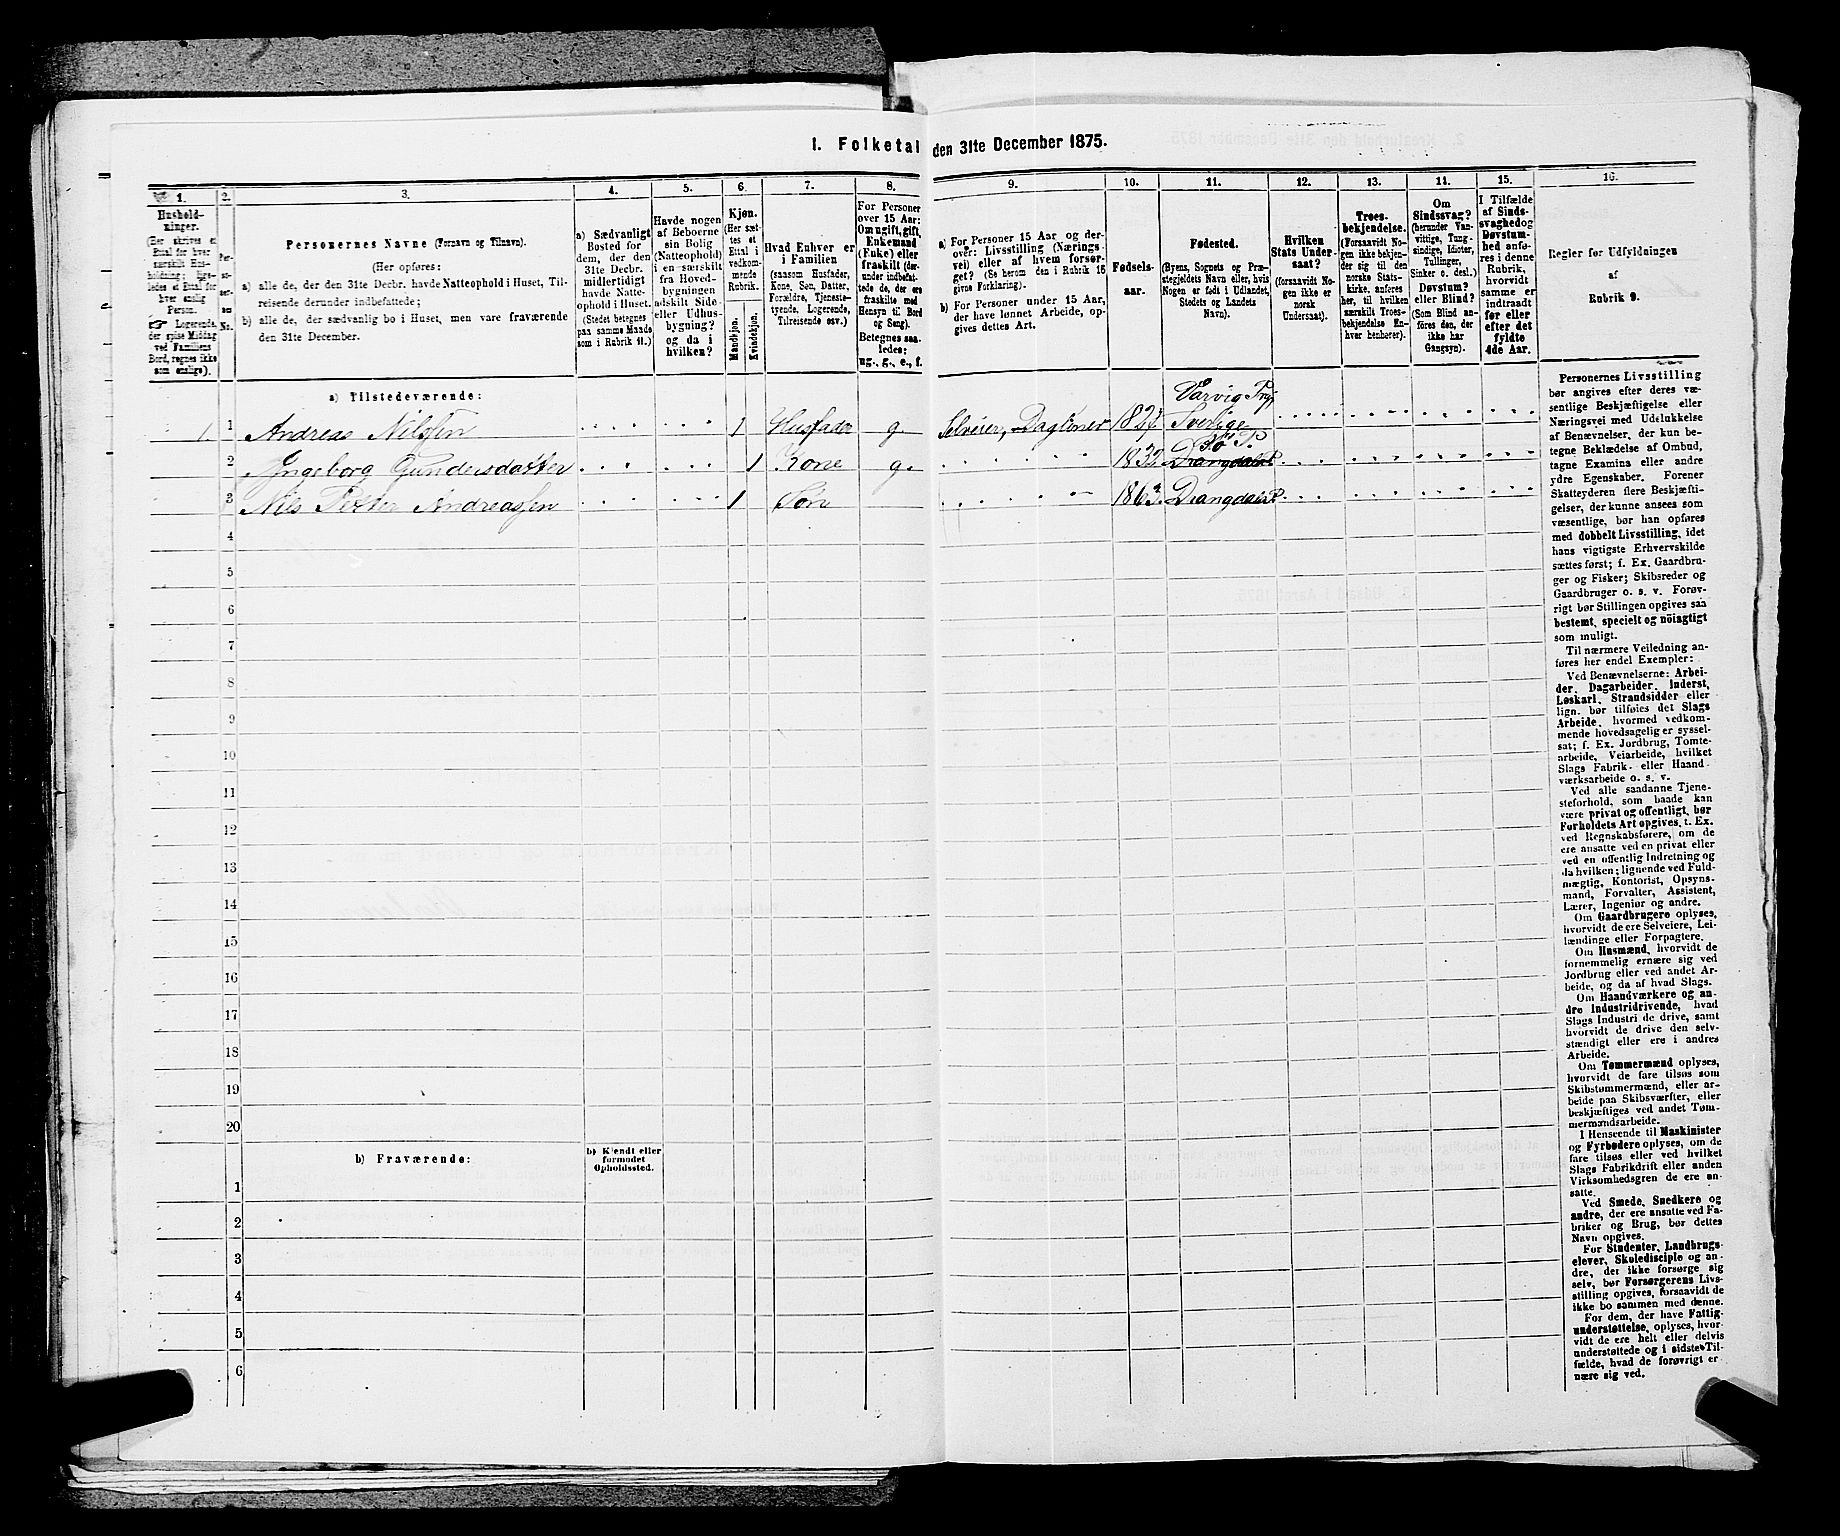 1. Folketal den 31te December 1875.
1. 2. 3. 4. 5. 6. 7. 8. 9. 10. 11. 12. 13. 14. 15. 16.
Hushold-
ninger.
(Her skrives et
Ettal for hver
særskilt Hus-
holdning; lige-
ledes et Ettal for
hver enslig
Person.
☞ Logerende,
der spise Middag
ved Familiens
Bord, regnes ikke
som enslige).
Per-
so-
ner-
nes
No.
Personernes Navne (Fornavn og Tilnavn).
(Her opføres:
a) alle de, der den 31te Decbr. havde Natteophold i Huset, Til-
reisende derunder indbefattede;
b) alle de, der sædvanlig bo i Huset, men vare fraværende
den 31te December.
a) Sædvanligt
Bosted for
dem, der den
31te Decbr.
midlertidigt
havde Natte-
ophold i Huset.
(Stedet betegnes
paa samme Maade
som i Rubrik 11.)
Havde nogen
af Beboerne
sin Bolig
(Natteophold)
i en særskilt
fra Hoved-
bygningen
adskilt Side-
eller Udhus-
bygning?
og da i
hvilken?
Kjøn.
(Her sæt-
tes et
Ettal i
vedkom-
mende
Rubrik.
Mandkjøn.
Kvindekjøn.
Hvad Enhver er
i Familien
(saasom Husfader,
Kone, Søn, Datter,
Forældre, Tjeneste-
tyende, Logerende,
Tilreisende osv.)
For Personer
over 15 Aar:
Om ugift, gift,
Enkemand
(Enke) eller
fraskilt (der-
under indbefat-
tede de, der ere
fraskilte med
Hensyn til Bord
og Seng).
Betegnes saa-
ledes:
ug., g., e., f.
a) For Personer 15 Aar og der-
over: Livsstilling (Nærings-
vei) eller af hvem forsør-
get? (Se herom den i Rubrik 16
givne Forklaring).
b) For Personer under 15 Aar,
der have lønnet Arbeide, op-
gives dettes Art.
Fødsels-
aar.
Fødested.
(Byens, Sognets og Præ-
stegjeldets Navn eller, hvis
Nogen er født i Udlandet,
Stedets og Landets
Navn).
Hvilken
Stats Under-
saat?
(forsaavidt No-
gen ikke er
norsk
Undersaat).
Troes-
bekjendelse.
(Forsaavidt No-
gen ikke bekjen-
der sig til den
norske Stats-
kirke, anføres
her, til hvilken
særskilt Troes-
bekjendelse En-
hver henhører).
Om
Sindssvag?
(herunder Van-
vittige, Tung-
sindige, Idioter,
Tullinger,
Sinker o. desl.)
Døvstum?
eller Blind?
(Som Blind an-
føres den, der
ikke har
Gangsyn).
I Tilfælde
af Sinds-
svaghed og
Døvstum-
hed anfø-
res i denne
Rubrik,
hvorvidt
samme er
indtraadt
før eller
efter det
fyldte
4de Aar.
Regler for Udfyldningen
af
Rubrik 9.
a) Tilstedeværende:
1. 1 Andreas Nilssen 1 Husfader g. Selveier, Daglöner 1827. Varvig Prgj. Sverige
2 Ingeborg Gundersdatter 1 Kone g. 1832 Drangdalsk Bö P.
3 Nils Petter Andreassen 1 Søn 1863. Drangdalsk
4
5
6
7
8
9
10
11
12
13
14
15
16
17
18
19
20
b) Fraværende:
b) Kjendt eller
formodet
Opholdssted.
1
2
3
4
5
6
Personernes Livsstilling
bør angives efter deres væ-
sentlige Beskjæftigelse eller
Næringsvei med Udelukkelse
af Benævnelser, der kun be-
tegne Beklædelse af Ombud,
tagne Examina eller andre
ydre Egenskaber. Forener
Skatteyderen flere Beskjæfti-
gelser, der kunne ansees som
væsentlige, bør han opføres
med dobbelt Livsstilling, idet
hans vigtigste Erhvervskilde
sættes først; f. Ex. Gaardbru-
ger og Fisker; Skibsreder og
Gaardbruger o. s. v. Forøv-
rigt bør Stillingen opgives saa
bestemt, specielt og nöiagtigt
som muligt.
Til nærmere Veiledning an-
føres her endel Exempler:
Ved Benævnelserne: Arbei-
der, Dagarbeider, Inderst,
Løskarl, Strandsidder eller
lign. bør tilføies det Slags
Arbeide, hvormed vedkom-
mende hovedsagelig er syssel-
sat; f. Ex. Jordbrug, Tomte-
arbeide, Veiarbeide, hvilket
Slags Fabrik- eller Haand-
værksarbeide o. s. v.
Ved alle saadanne Tjene-
steforhold, som baade kan
være privat og offentligt, bør
Forholdets Art opgives, t. Ex.
ved Regnskabsførere, om de
ere ansatte ved en privat eller
ved en offentlig Indretning og
da hvilken; lignende ved Fuld-
mægtig, Kontorist, Opsyns-
mand, Forvalter, Assistent,
Lærer, Ingeniør og andre.
Om Gaardbrugere oplyses,
hvorvidt de ere Selveiere, Lei-
lændinge eller Forpagtere.
Om Husmænd, hvorvidt de
fornemmelig ernære sig ved
Jordbrug eller ved andet Ar-
beide, og da af hvad Slags.
Om Haandværkere og an-
dre Industridrivende, hvad
Slags Industri de drive, samt
hvorvidt de drive den selv-
stændigt eller ere i andres
Arbeide.
Om Tømmermænd oplyses,
hvorvidt de fare tilsøs som
Skibstømmermænd, eller ar-
beide paa Skibsværfter, eller
beskjæftiges ved andet Tøm-
mermandsarbeide.
I Henseende til Maskinister
og Fyrbødere oplyses, om de
fare tilsøs eller ved hvilket
Slags Fabrikdrift eller anden
Virksomhedsgren de ere an-
satte.
Ved Smede, Snedkere og
andre, der ere ansatte ved Fa-
briker og Brug, bør dettes
Navn opgives.
For Studenter, Landbrugs-
elever, Skoledisciple og an-
dre, der ikke forsørge sig
selv, bør Forsørgerens Livs-
stilling opgives, forsaavidt de
ikke bo sammen med denne.
For dem, der have Fattig-
understøttelse, oplyses, hvor-
vidt de ere helt eller delvis
understøttede og i sidste Til-
fælde, hvad de forøvrigt er-
nære sig ved.